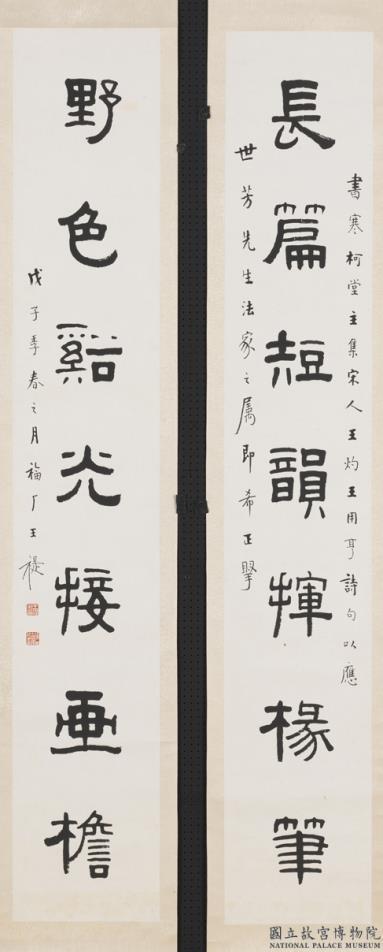 書寒柯堂主集宋人王灼王用亨詩句以應
長篇短韻揮椽筆
世芳先生法家之属即希正擘
野色谿光接畫檐
戊子季春之月福厂王禔
國立故宮博物院
NATIONAL PALACE MUSEUM